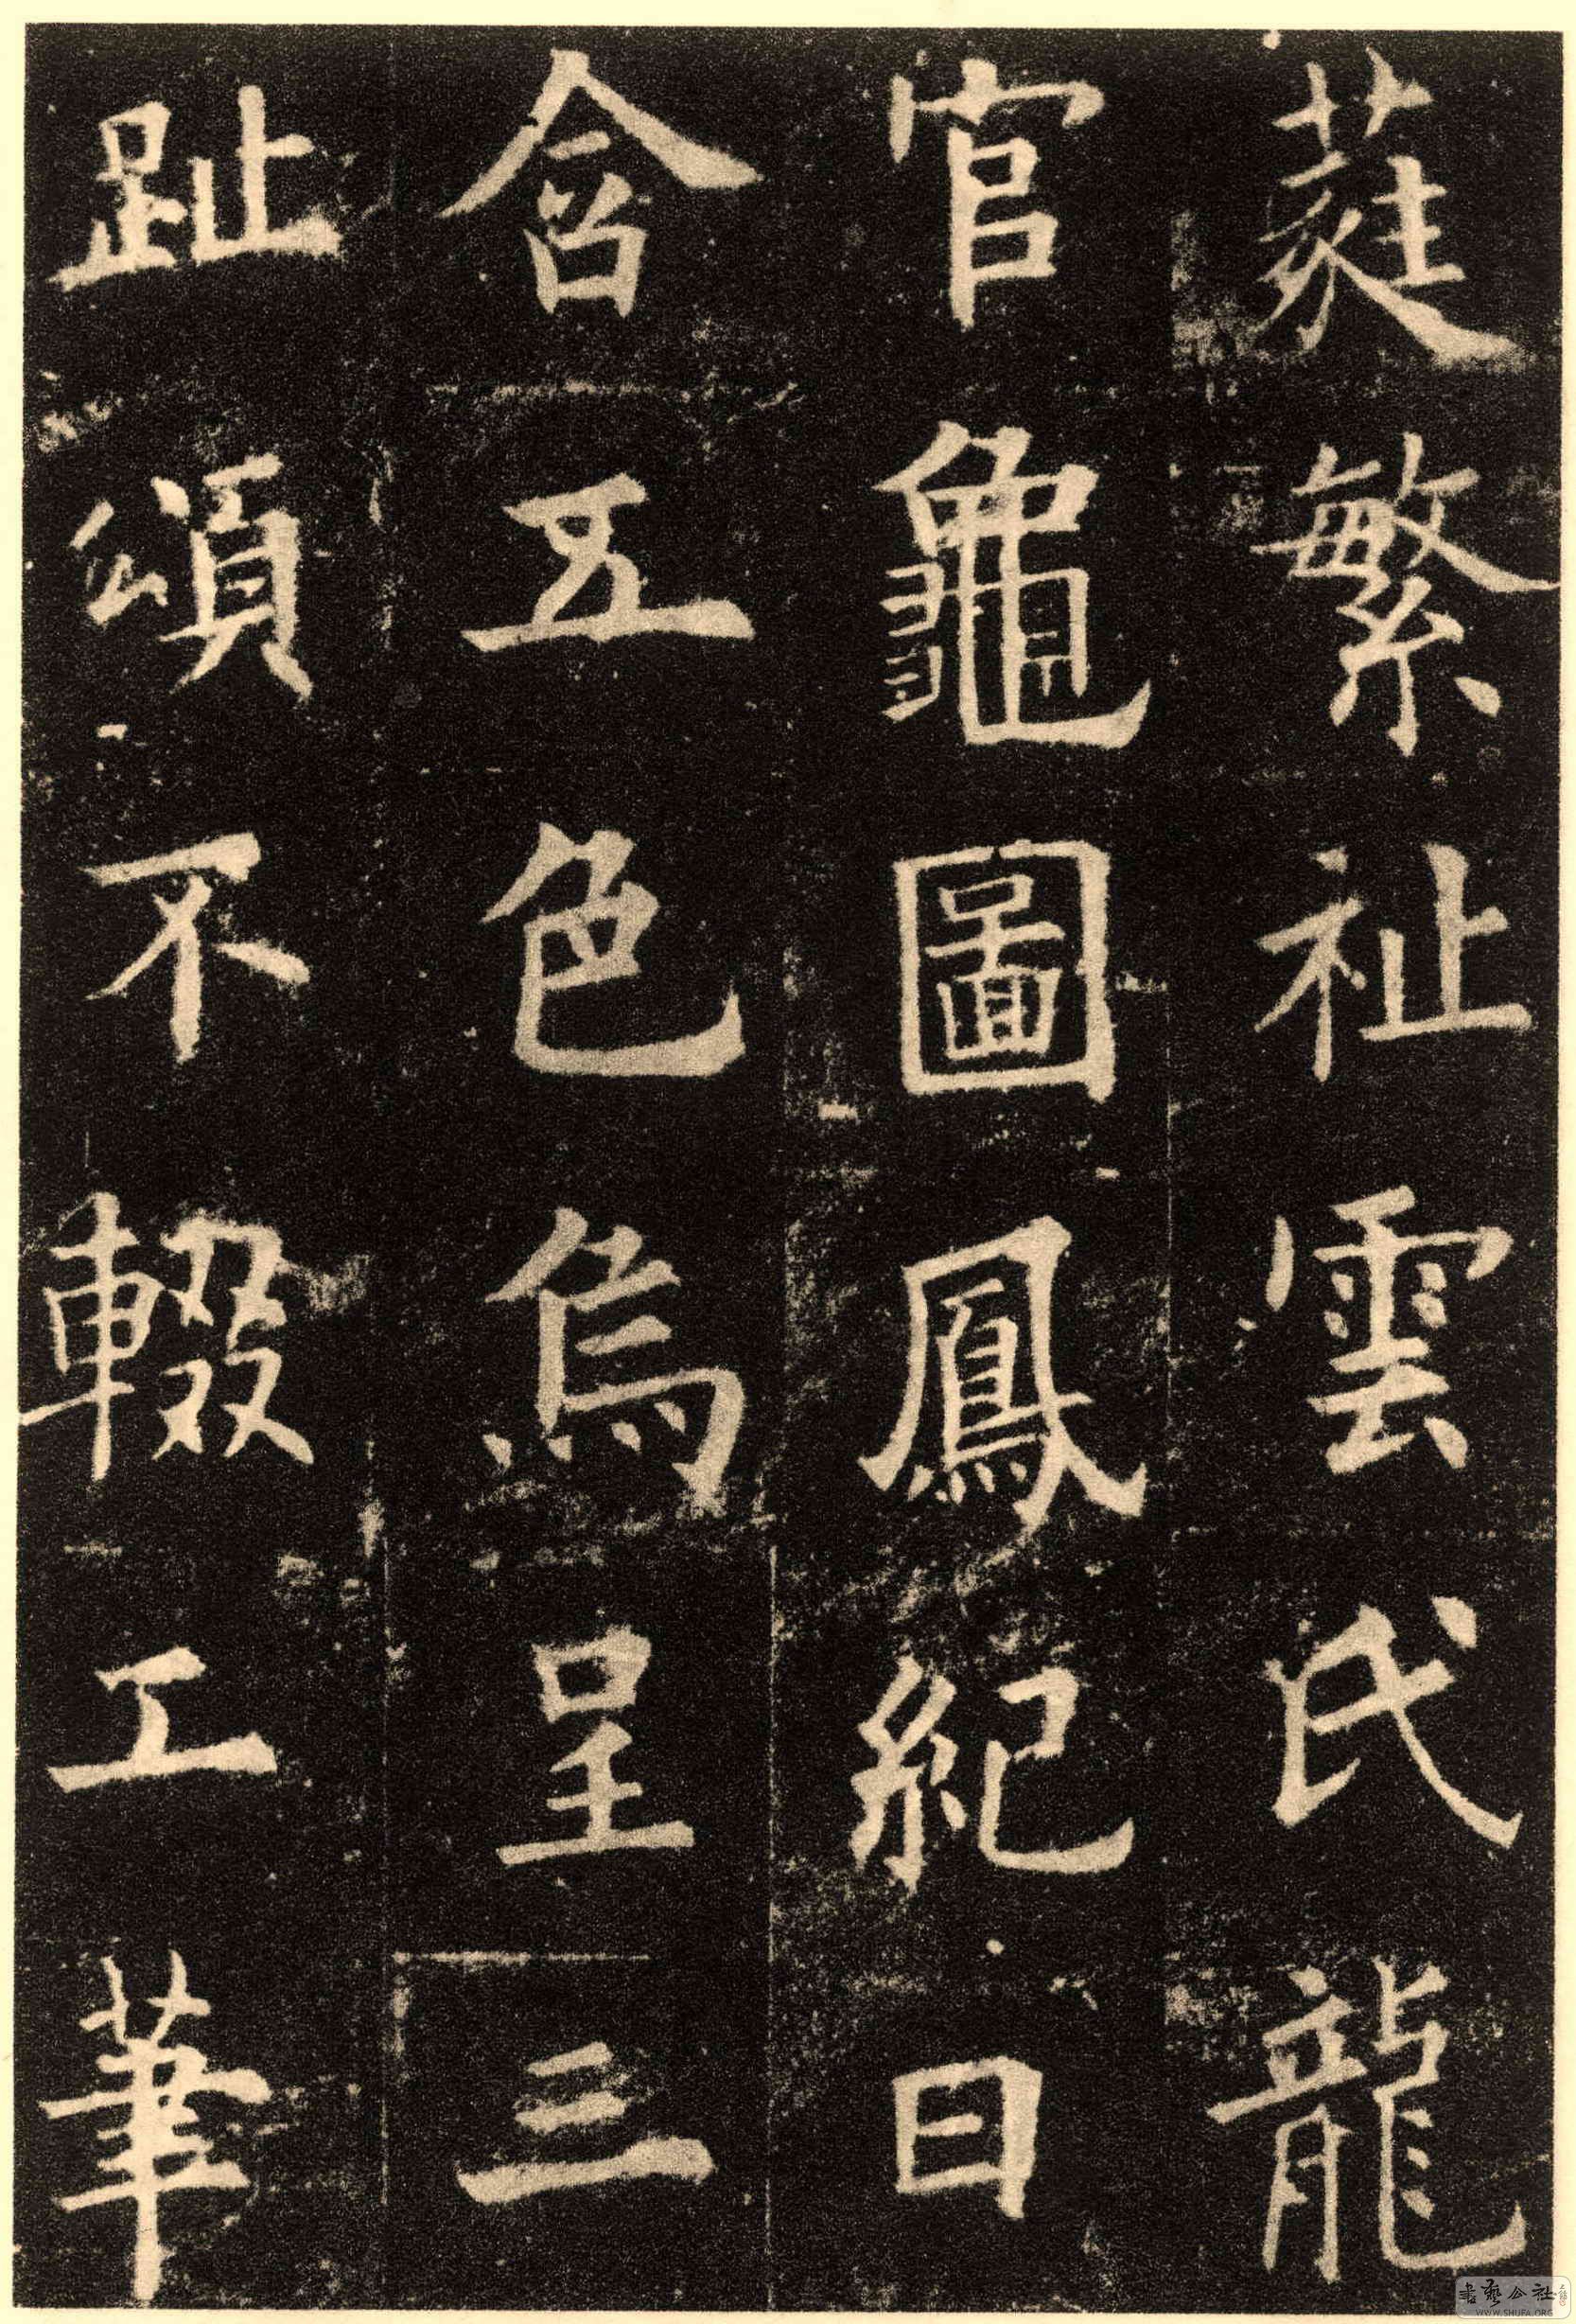 蕤繁祉雲氏龍
官龜圖鳳紀日
含五色烏呈三
趾頌不輟工筆
書藝公社
WWW.SHUFA.ORG